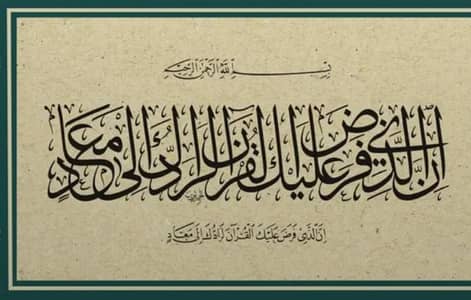 بسم الله الرحمن الرحيم
إن الذي فرض عليك القرآن لرادك إلى معاد
إن الذي فرض عليك القرآن لرادك إلى معاد